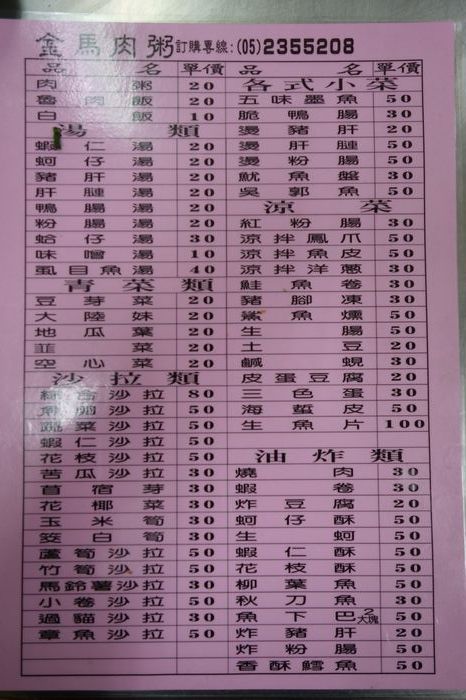 金馬肉粥 訂購專線:(05)2355208
品名 單價
肉粥 20
魯肉飯 20
白飯 10
湯類
蝦仁湯 20
蚵仔湯 20
豬肝湯 20
肝腱湯 20
鴨腸湯 20
粉腸湯 20
蛤仔湯 30
味噌湯 10
虱目魚湯 40
青菜類
豆芽菜 20
大陸妹 20
地瓜葉 20
韮菜 20
空心菜 20
沙拉類
綜合沙拉 80
魚卵沙拉 50
蔬菜沙拉 50
蝦仁沙拉 50
花枝沙拉 50
苦瓜沙拉 30
苜宿芽 30
花椰菜 30
玉米筍 30
筊白筍 30
蘆筍沙拉 50
竹筍沙拉 50
馬鈴薯沙拉 30
小卷沙拉 50
過貓沙拉 30
章魚沙拉 50
品名 單價
各式小菜
五味墨魚 50
脆鴨腸 30
燙豬肝 20
燙肝腱 50
燙粉腸 50
魷魚盤 30
吳郭魚 50
涼菜
紅粉腸 30
涼拌鳳爪 50
涼拌魚皮 50
涼拌洋蔥 30
鮭魚卷 30
豬腳凍 30
鯊魚燻 50
生腸 50
土豆 20
鹹蜆 30
皮蛋豆腐 20
三色蛋 30
海蜇皮 50
生魚片 100
油炸類
燒肉 30
蝦卷 30
炸豆腐 20
蚵仔酥 50
生蚵 50
蝦仁酥 50
花枝酥 50
柳葉魚 50
秋刀魚 30
魚下巴 2大塊 50
炸豬肝 20
炸粉腸 50
香酥鱈魚 50